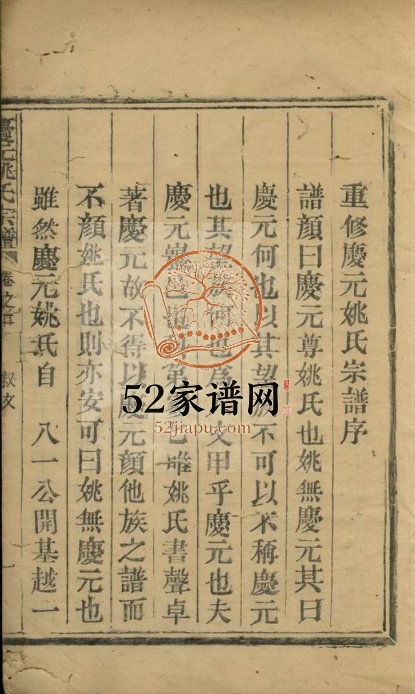 重修慶元姚氏宗譜序
譜顏曰慶元尊姚氏也姚無慶元其曰
慶元何也以其望族不可以不稱慶元
也其望族何也甲乎慶元也夫
慶元也姚氏書聲卓
著慶元故不得以元顏他族之譜而
不顏姚氏也則亦安可曰姚無慶元也
雖然慶元姚氏自 八一公開基越一
慶元姚氏宗譜
卷之
叙文
一
52家谱网
52jiapu.com